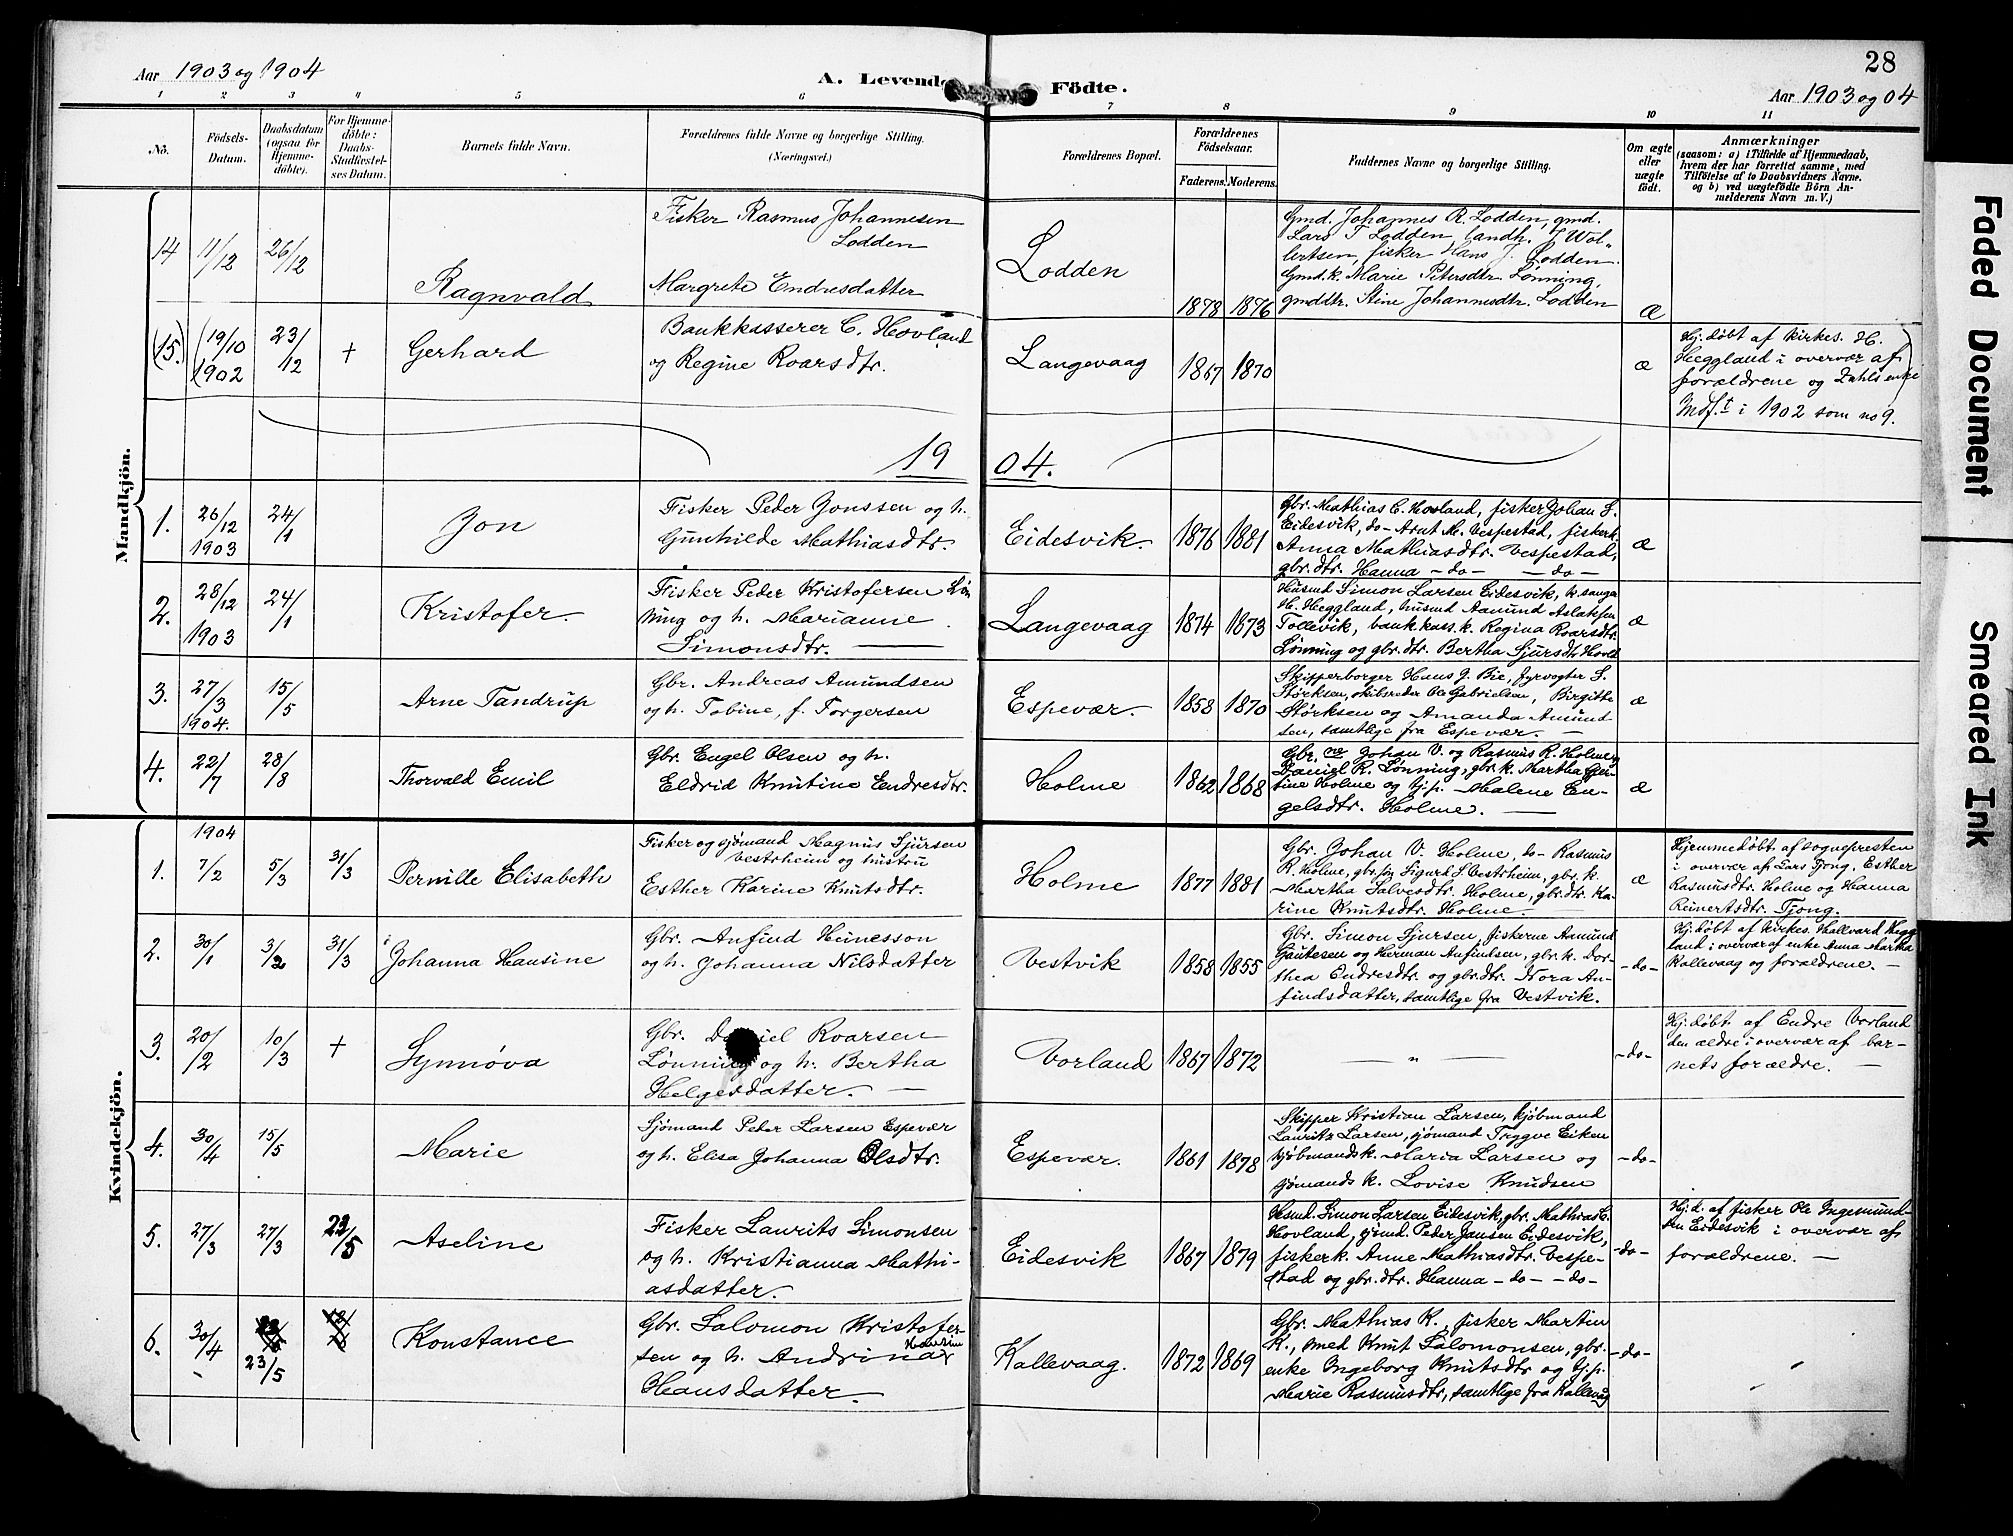 28
Aar 1903 og 1904
A. Levende Födte.
Aar 1903 og 04
1 2 3 4 5 6 7 8 9 10 11
No.
Födsels-
Datum.
Daabsdatum
(ogsaa for
Hjemme-
döbte).
For Hjemme-
döbte:
Daabs-
Stadfæstel-
ses Datum.
Barnets fulde Navn.
Forældrenes fulde Navne og borgerlige Stilling.
(Næringsvei.)
Forældrenes Bopæl.
Forældrenes
Födselsaar.
Faderens. Moderens.
Faddernes Navne og borgerlige Stilling.
Om ægte
eller
uægte
födt.
Anmærkninger
(saasom: a) i Tilfælde af Hjemmedaab,
hvem der har forrettet samme, med
Tilföielse af to Daabsvidners Navne.
og b) ved uægtefödte Börn An-
melderens Navn m. V.)
Mandkjön.
14 11/12 26/12
Ragnvald
Fisker Rasmus Johannesen
Lodden
Margrete Endresdatter
Lodden
1878 1876
Gmd. Johannes R. Lodden, gmd.
Lars T Lodden, landh. J Wol-
lertsen, fisker Hans J. Lodden.
Gmd.k. Marie Petersdtr. Lönning,
gmddtr. Stine Johannesdtr. Lodden
æ
(15.) (19/10 1902 23/12 +
Gerhard
Bankkasserer C. Hovland
og Regine Roarsdtr.
Langevaag
1867 1870
æ
Hj.döbt af kirkes. H.
Heggland i overvær af
forældrene og Dahls enke
Indf.t i 1902 som no 9.
19 04.
1. 26/12 1903 24/1
Jon
Fisker Peder Jonssen og h.
Gunhilde Mathiasdtr.
Eidesvik.
1876 1881
Gbr. Mathias C. Hovland, fisker Johan S.
Eidesvik, do- Arnt M. Vespestad, fiskerk.
Anna Mathiasdtr. Vespestad,
gbr.dtr. Hanna - do - - do -
æ
2. 28/12 1903 24/1
Kristofer.
Fisker Peder Kristofersen Løn
ning og h. Marianne
Simonsdtr.
Langevaag
1874 1873
Husmd Simon Larsen Eidesvik, k.sanger
H. Heggland, husmd Aamund Aslaksen
Tollevik, bank.kass.k. Regina Roarsdtr.
Lönning og gbr.dtr. Bertha Sjursdtr Hovl.
æ
3. 27/3 1904. 15/5
Arne Tandrup
Gbr. Andreas Amundsen
og h. Tobine, f. Torgersen
Espevær.
1858 1870
Skipperborger Hans J. Bie, fyrvogter S.
Størksen, skibsreder Ole Gabrielsen, Birgitte
Størksen og Amanda Amund
sen, samtlige fra Espevær.
æ
4. 22/7 28/8
Thorvald Emil
Gbr. Engel Olsen og h.
Eldrid Knutine Endresdtr.
Holme
1862 1868
Gbr.ne Johan V. og Rasmus R. Holme,
Daniel R. Lønning, gbr.k. Martha Ger-
tine Holme og tj.p. Malene En-
gelsdtr. Holme.
æ
Kvindekjön.
1904
1. 7/2 5/3 31/3
Pernille Elisabeth
Fisker og sjömand Magnus Sjursen
Vestrheim og hustru
Esther Karine Knutsdtr.
Holme
1877 1881
Gbr. Johan V Holme, do- Rasmus
R. Holme, gbr.søn Sigurd S. Vestrheim, gbr. k.
Martha Salvesdtr. Holme, gbr.dtr. Ka-
rine Knutsdtr. Holme.
æ
Hjemmedöbt af sognepresten
i overvær af: Lars Tjong, Esther
Rasmusdtr. Holme og Hanna
Reinertsdtr. Tjong.
2. 30/1 3/2 31/3
Johanna Hansine
Gbr. Anfind Heinesson
og h. Johanna Nilsdatter
Vestvik
1858 1855
Gbr. Simon Sjursen, fiskerne Aamund
Gautesen og Herman Anfindsen, gbr. k. Dor-
thea Endresdtr. og gbr.dtr. Nora An-
findsdatter, samtlige fra Vestvik.
- do -
Hj.döbt af kirkes Hallvard Hegg
land i overvær af enke Anna Marta
Kallevaag og forældrene. -
3. 20/2 10/3 +
Synnóva
Gbr. Daniel Roarsen
Lönning og h. Bertha
Helgesdatter.
Vorland
1867 1872
— " —
- do -
Hj.döbt af Endre Vorland
den ældre i overvær af bar-
nets forældre. -
4. 30/4 15/5
Marie
Sjömand Peder Larsen Espevær
og h. Elisa Johanna Olsdtr.
Espevær.
1861 1878
Skipper Kristian Larsen, kjöbmand
Lauritz Larsen, sjömand Trygve Eiken
kjöbmandsk. Maria Larsen og
sjömands k. Lovise Knudsen
- do -
5. 27/3 27/3 23/5
Aseline
Fisker Laurits Simonsen
og h. Kristianna Mathi-
asdatter.
Eidesvik
1867 1879
Husmd. Simon Larsen Eidesvik, gbr. Mathias C.
Hovland, sjömd. Peder Jansen Eidesvik,
fiskerk. Anne Mathiasdtr. Vespe-
stad og gbr.dtr. Hanna - do - - do -
- do -
Hj.d. af fisker Ole Ingemund-
sen Eidesvik i overvær af
forældrene. -
6. 30/4 23/5
Konstance
Gbr. Salomon Kristofer-
sen og h. Andrina
Hansdatter.
Kallevaag.
1872 1869
Gbr. Mathias K., fisker Martin
K., med Knut Salomonsen, gbr.
enke Ingeborg Knutsdtr og tj.p.
Marie Rasmusdtr, samtlige fra Kallevaag
- do -
Faded Document
Smeared Ink